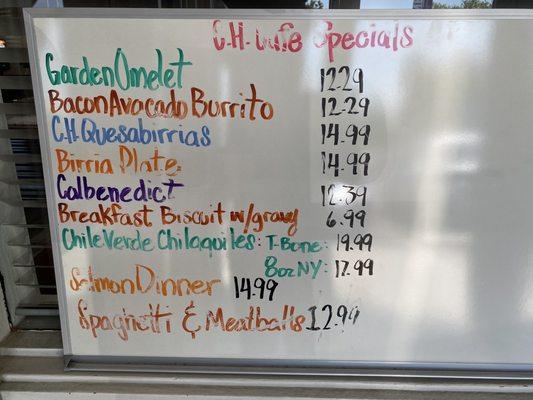 C.H. Cafe Specials
Garden Omelet 12.29
Bacon Avocado Burrito 12.29
C.H. Quesabirrias 14.99
Birria Plate 14.99
Calbenedict 12.39
Breakfast Biscuit w/gravy 6.99
Chile Verde Chilaquiles: T-Bone: 19.99
8oz NY: 17.99
Salmon Dinner 14.99
Spaghetti & Meatballs 12.99